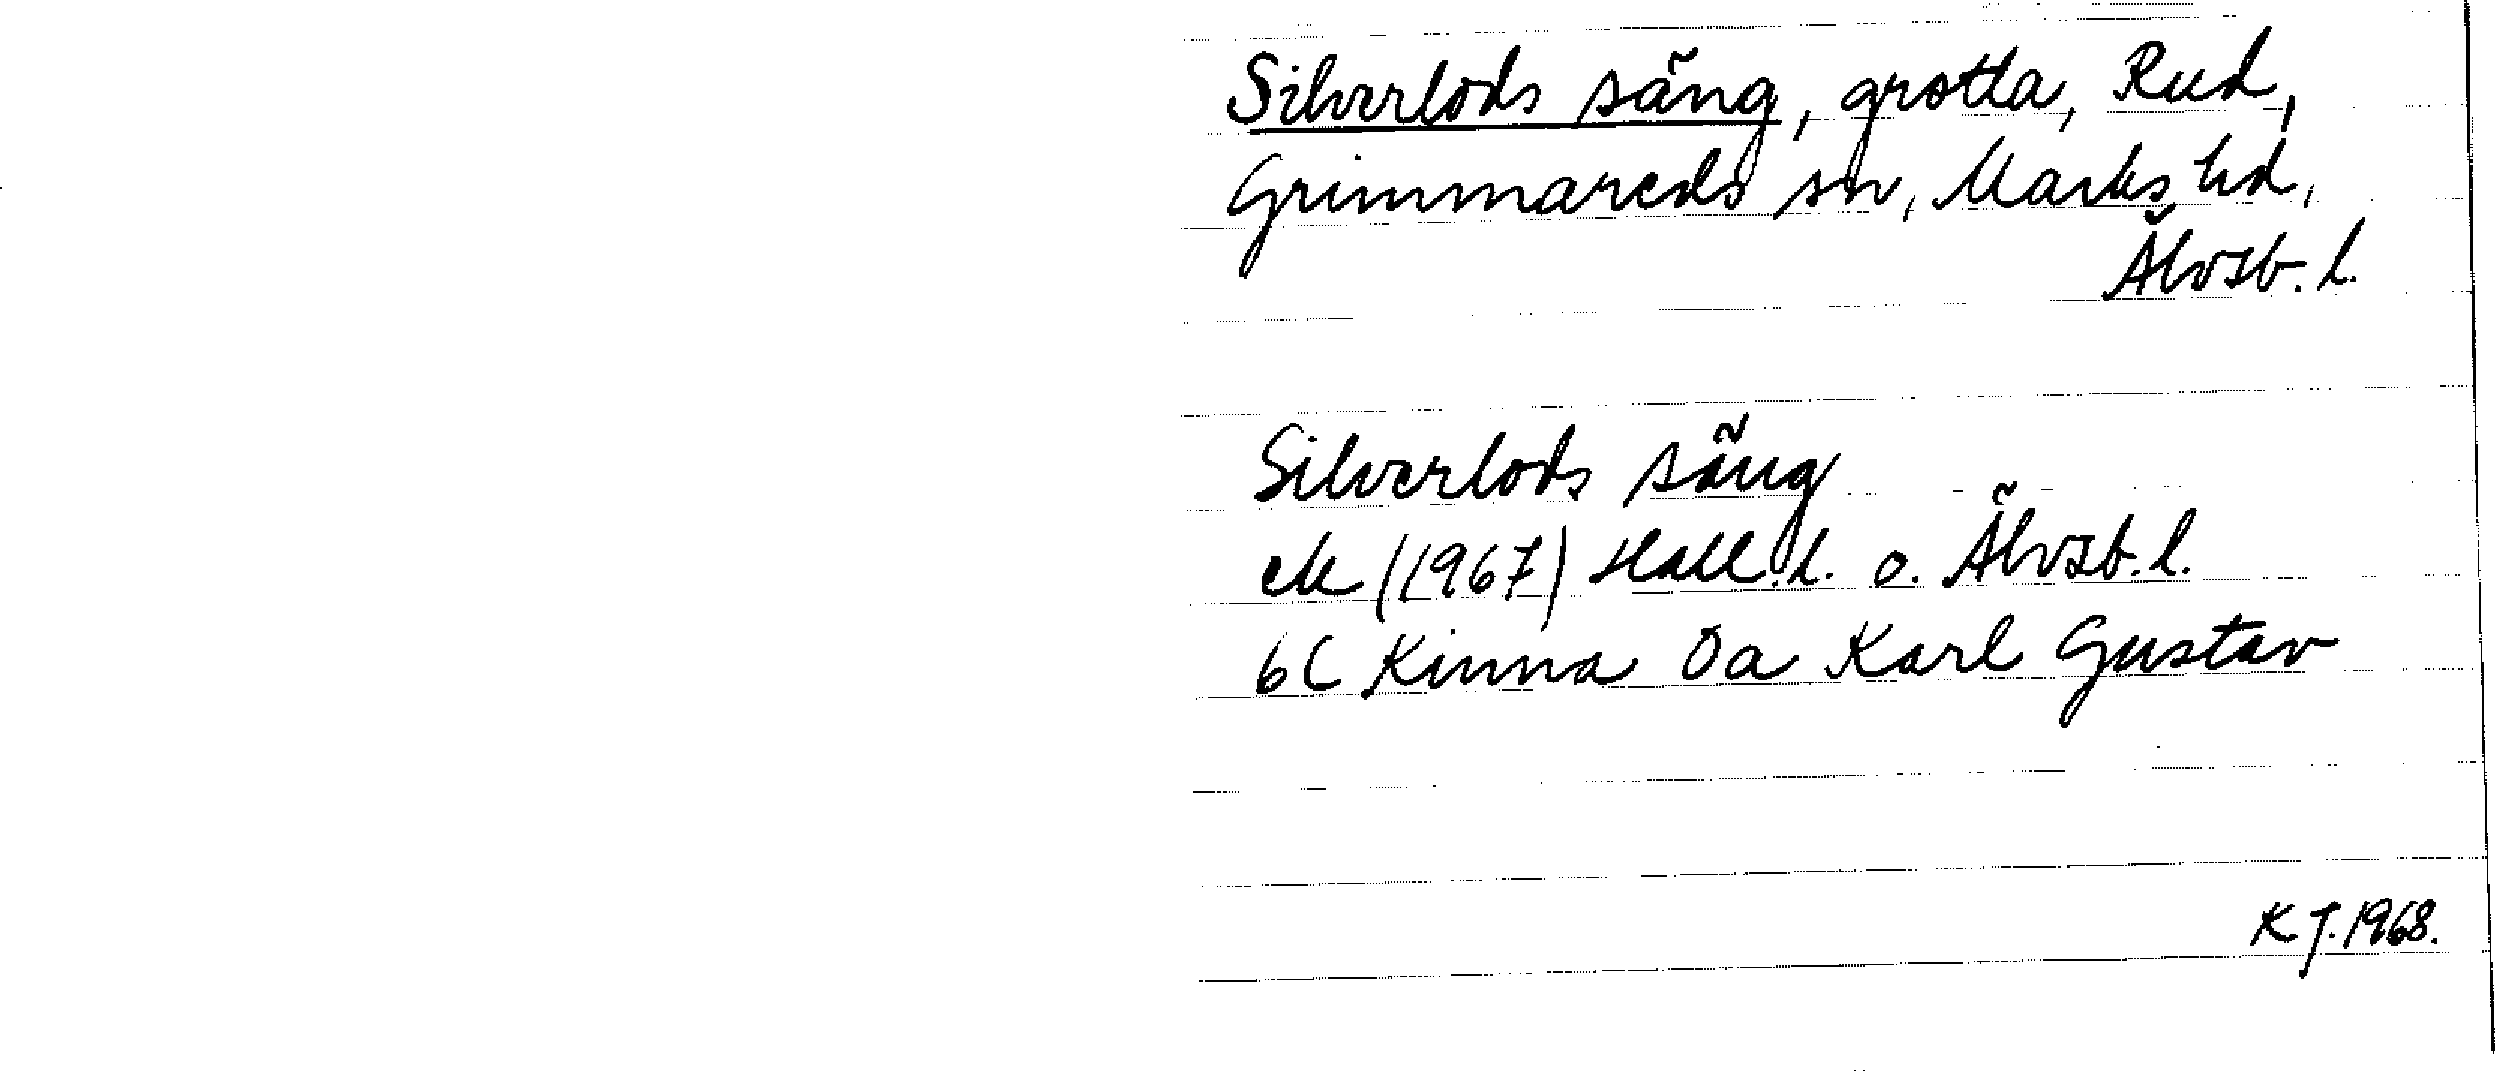 Silverlods säng, grotta, Rud,
Grimmareds sn, Marks hd,
Älvsb. l.
Silverlods säng
ek (1967) Hall. l. o. Älvsb. l.
6C Kinna 0a Karl Gustav
K J. 1968.